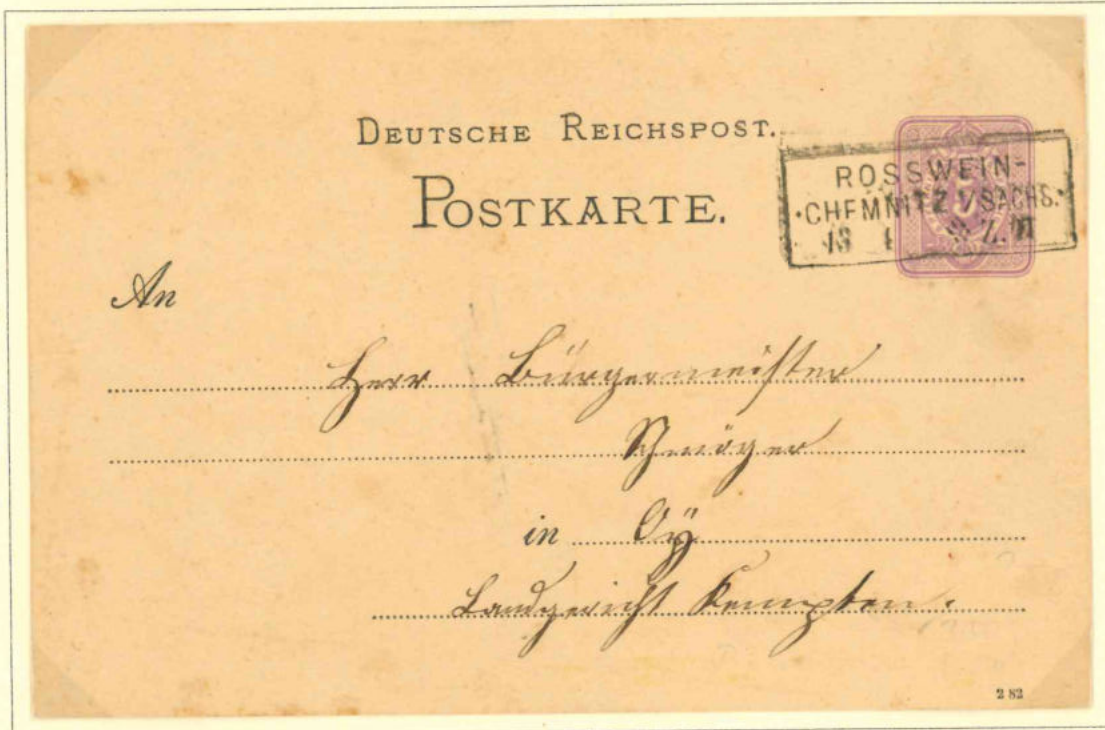 DEUTSCHE REICHSPOST.
POSTKARTE.
ROSSWEIN-
·CHEMNITZ I/SACHS.·
5
An
Herr Bürgermeister
in Oÿ
Landgericht Kempten.
2 82